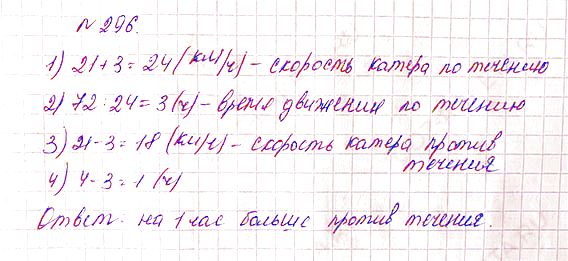 № 296.
1) 21+3=24 (км/ч) – скорость катера по течению
2) 72:24=3 (ч) – время движения по течению
3) 21-3=18 (км/ч) – скорость катера против
течения
4) 4-3=1 (ч)
Ответ: на 1 час больше против течения.